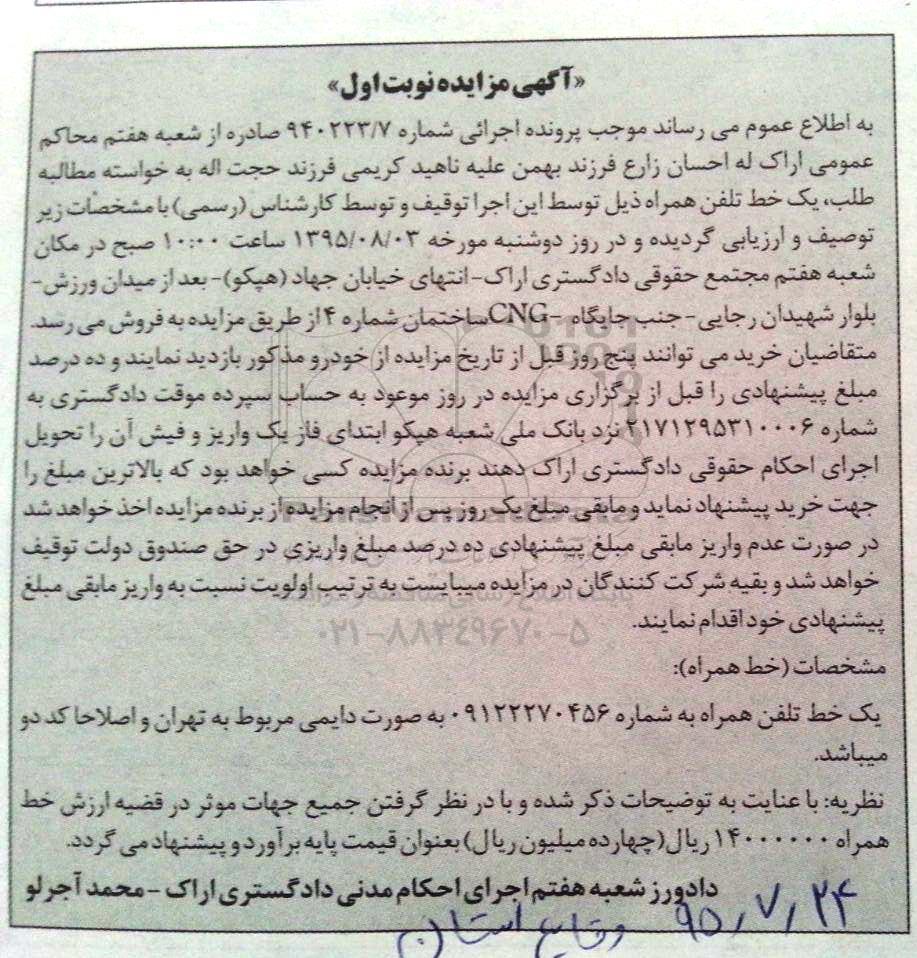 «آگهی مزایده نوبت اول»
به اطلاع عموم می رساند موجب پرونده اجرائی شماره ۹۴۰۲۲۳/۷ صادره از شعبه هفتم محاکم
عمومی اراک له احسان زارع فرزند بهمن علیه ناهید کریمی فرزند حجت اله به خواسته مطالبه
طلب، یک خط تلفن همراه ذیل توسط این اجرا توقیف و توسط کارشناس (رسمی) با مشخصات زیر
توصیف و ارزیابی گردیده و در روز دوشنبه مورخه ۱۳۹۵/۰۸/۰۳ ساعت ۱۰:۰۰ صبح در مکان
شعبه هفتم مجتمع حقوقی دادگستری اراک-انتهای خیابان جهاد (هپکو)- بعد از میدان ورزش-
بلوار شهیدان رجایی- جنب جایگاه -CNGساختمان شماره ۴ از طریق مزایده به فروش می رسد.
متقاضیان خرید می توانند پنج روز قبل از تاریخ مزایده از خودرو مذکور بازدید نمایند و ده درصد
مبلغ پیشنهادی را قبل از برگزاری مزایده در روز موعود به حساب سپرده موقت دادگستری به
شماره ۲۱۷۱۲۹۵۳۱۰۰۰۶ نزد بانک ملی شعبه هپکو ابتدای فاز یک واریز و فیش آن را تحویل
اجرای احکام حقوقی دادگستری اراک دهند برنده مزایده کسی خواهد بود که بالاترین مبلغ را
جهت خرید پیشنهاد نماید و مابقی مبلغ یک روز پس از انجام مزایده از برنده مزایده اخذ خواهد شد
در صورت عدم واریز مابقی مبلغ پیشنهادی ده درصد مبلغ واریزی در حق صندوق دولت توقیف
خواهد شد و بقیه شرکت کنندگان در مزایده میبایست به ترتیب اولویت نسبت به واریز مابقی مبلغ
پیشنهادی خود اقدام نمایند.
۰۲۱-۸۸۳۴۹۶۷۰-۵
مشخصات (خط همراه):
یک خط تلفن همراه به شماره ۰۹۱۲۲۲۷۰۴۵۶ به صورت دایمی مربوط به تهران و اصلاحا کد دو
میباشد.
نظریه: با عنایت به توضیحات ذکر شده و با در نظر گرفتن جمیع جهات موثر در قضیه ارزش خط
همراه ۱۴۰۰۰۰۰۰ ریال(چهارده میلیون ریال) بعنوان قیمت پایه برآورد و پیشنهاد می گردد.
دادورز شعبه هفتم اجرای احکام مدنی دادگستری اراک - محمد آجرلو
۹۵/۷/۲۴ وقایع استان